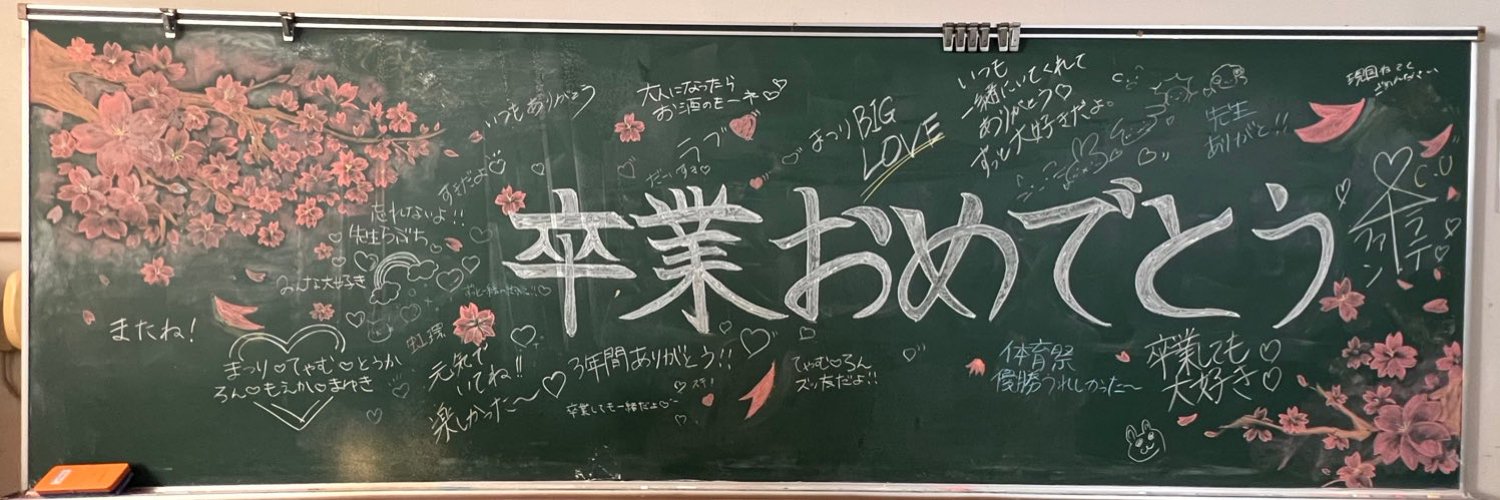 卒業おめでとう
いつもありがとう
大人になったら
お酒のもーネ
ラブ
だいすき
まつり BIG
LOVE
いつも
一緒にいてくれて
ありがとう
ずっと大好きだよ。
先生
ありがと!!
C.U
ラテ
ファン
すきだよ
忘れないよ!!
先生らぶち
みんな大好き
またね!
まつり♡てゃむ♡とうか
ろん♡もえか♡まゆき
元気で
いてね!!
楽しかった〜♡
3年間ありがとう!!
卒業しても一緒だよ
てゃむ♡ろん
ズッ友だよ!!
体育祭
優勝うれしかった〜
卒業しても
大好き